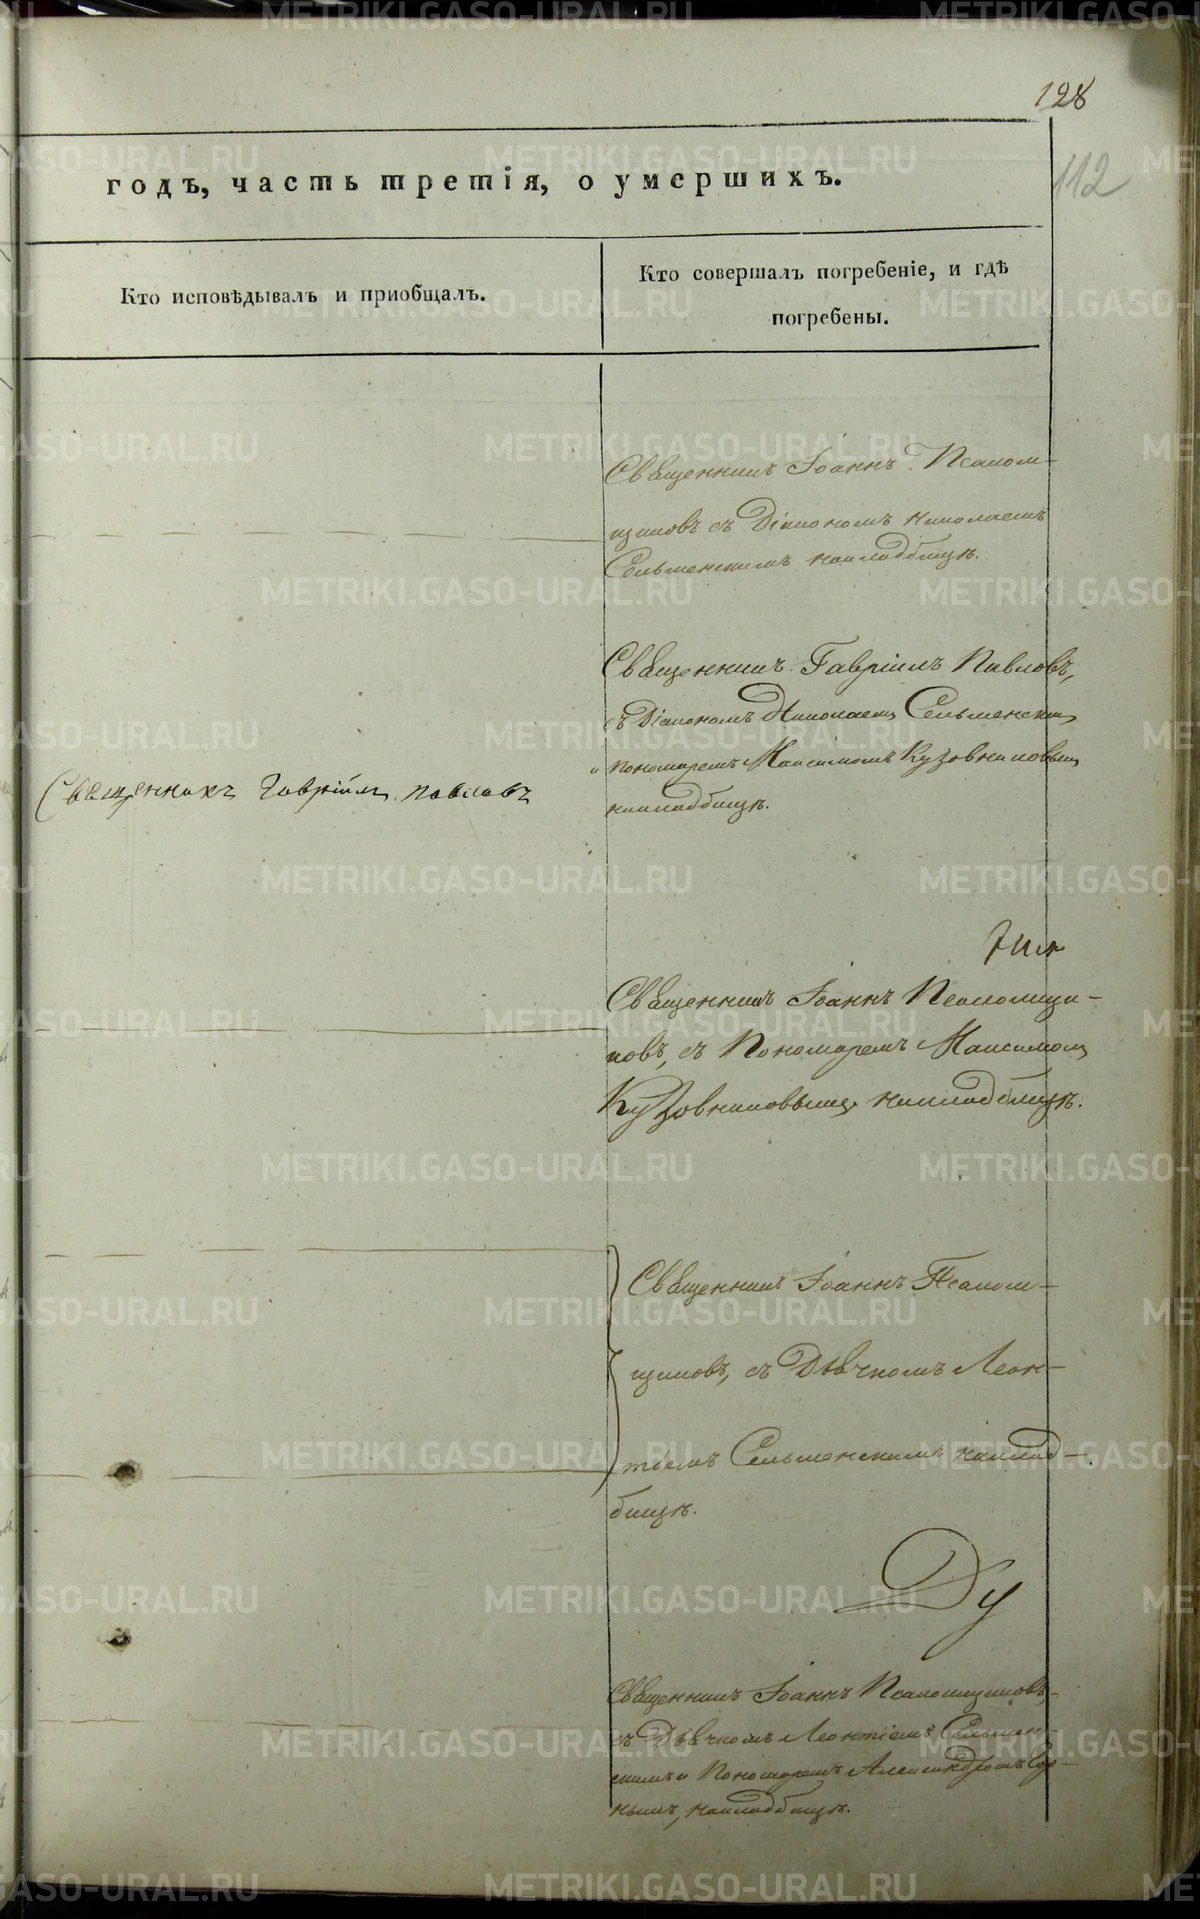 128
112
годъ, часть третія, о умершихъ.
Кто исповѣдывалъ и приобщалъ.
Кто совершалъ погребеніе, и гдѣ
погребены.
Священникъ Іоаннъ Псалом-
щиковъ съ Діакономъ Николаемъ
Сельменскимъ накладбищѣ.
Священникъ Гавріилъ Павловъ,
съ Діакономъ Николаемъ Сельменскимъ
и пономаремъ Максимомъ Кузовниковымъ
накладбищѣ.
Священникъ Гавріилъ Павловъ
Священникъ Іоаннъ Псаломщи-
ковъ, съ Пономаремъ Максимомъ
Кузовниковымъ накладбищѣ.
Священникъ Іоаннъ Псалом-
щиковъ, съ Дьячкомъ Леон-
тіемъ Сельменскимъ наклад-
бищѣ.
Священникъ Іоаннъ Псаломщиковъ,
съ Дьячкомъ Леонтіемъ Сельмен-
скимъ и Пономаремъ Александромъ
накладбищѣ.
METRIKI.GASO-URAL.RU